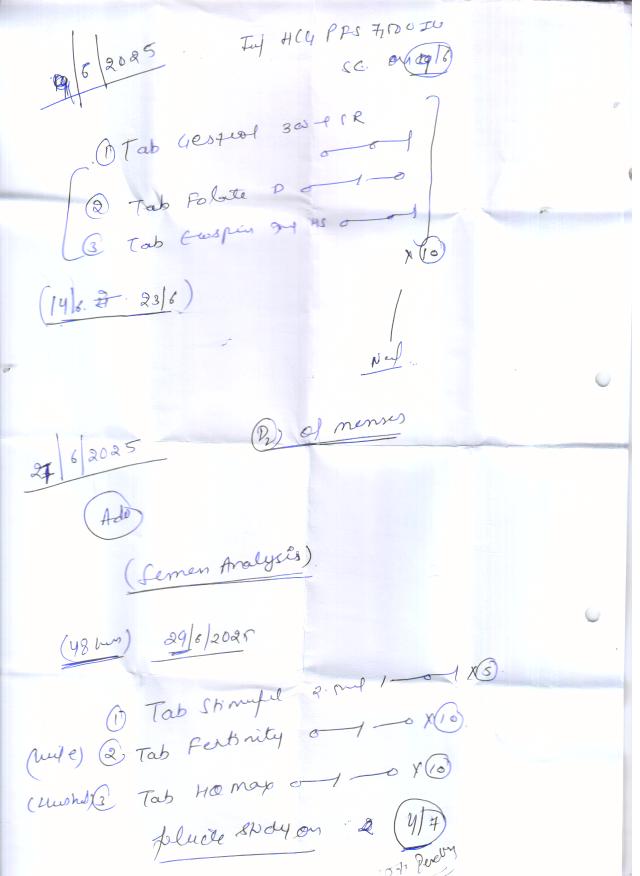 9/6/2025
Inj HCG PFS 7,500 IU
SC on 9/6
① Tab Gestfol 300 SR
② Tab Folate D
③ Tab Ecospin HS
x 10
(14/6 से 23/6)
D2 of menses
27/6/2025
Adv
(Semen Analysis)
(48 hrs) 29/6/2025
① Tab 2.5mg x 5
(wife) ② Tab Fertinity x 10
(Husband) ③ Tab HQ max x 10
follicle study on 4/7